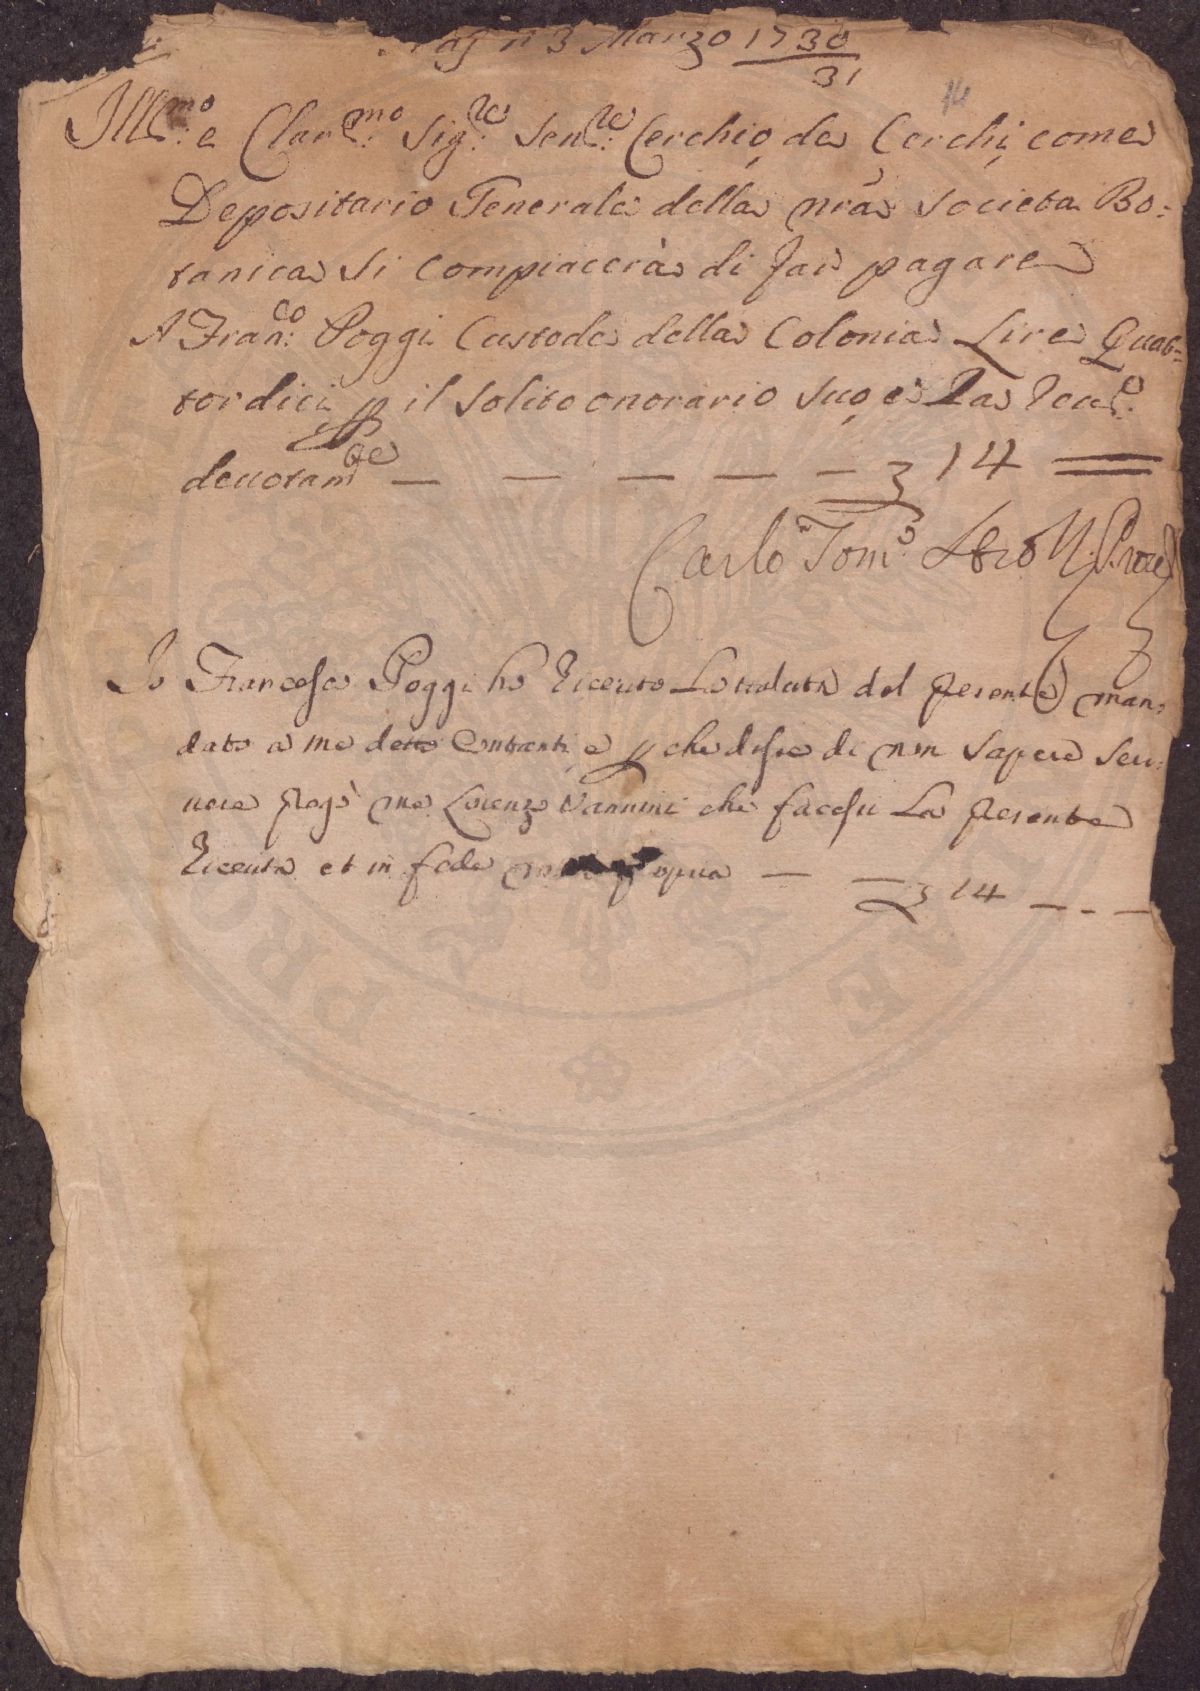 3 Marzo 1730
31
14
Ill:mo e Clar:mo Sig:re Sen:re Cerchio de Cerchi come
Depositario Generale della nr̃a Società Bo:
tanica si compiacerà di far pagare
A Fran:co Poggi Custode della Colonia Lire Quat=
tordici p il solito onorario suo, e La
deuotam:te — — — — — 14 ═
Carlo Tom:o
Io Francesco Poggi ho riceuto La ualuta del presente man:
dato a me detto Contanti, e p che disse di non sapere scri:
uere pregò me Lorenzo Vannini che facessi La presente
riceuta et in fede propria — — 14 — - —
PR